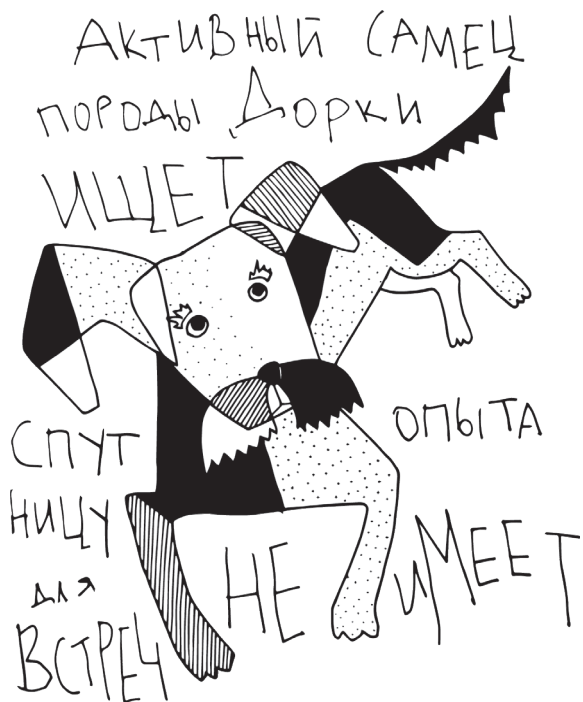 АКТИВНЫЙ САМЕЦ
ПОРОДЫ ДОРКИ
ИЩЕТ
СПУТ
НИЦУ
ДЛЯ
ВСТРЕЧ
ОПЫТА
НЕ ИМЕЕТ